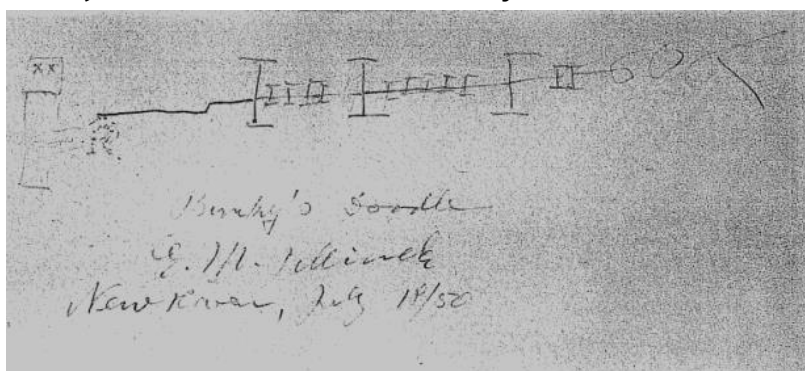 xx
Bunky's Doodle
E. M. Jellinek
New Haven, July 18/50